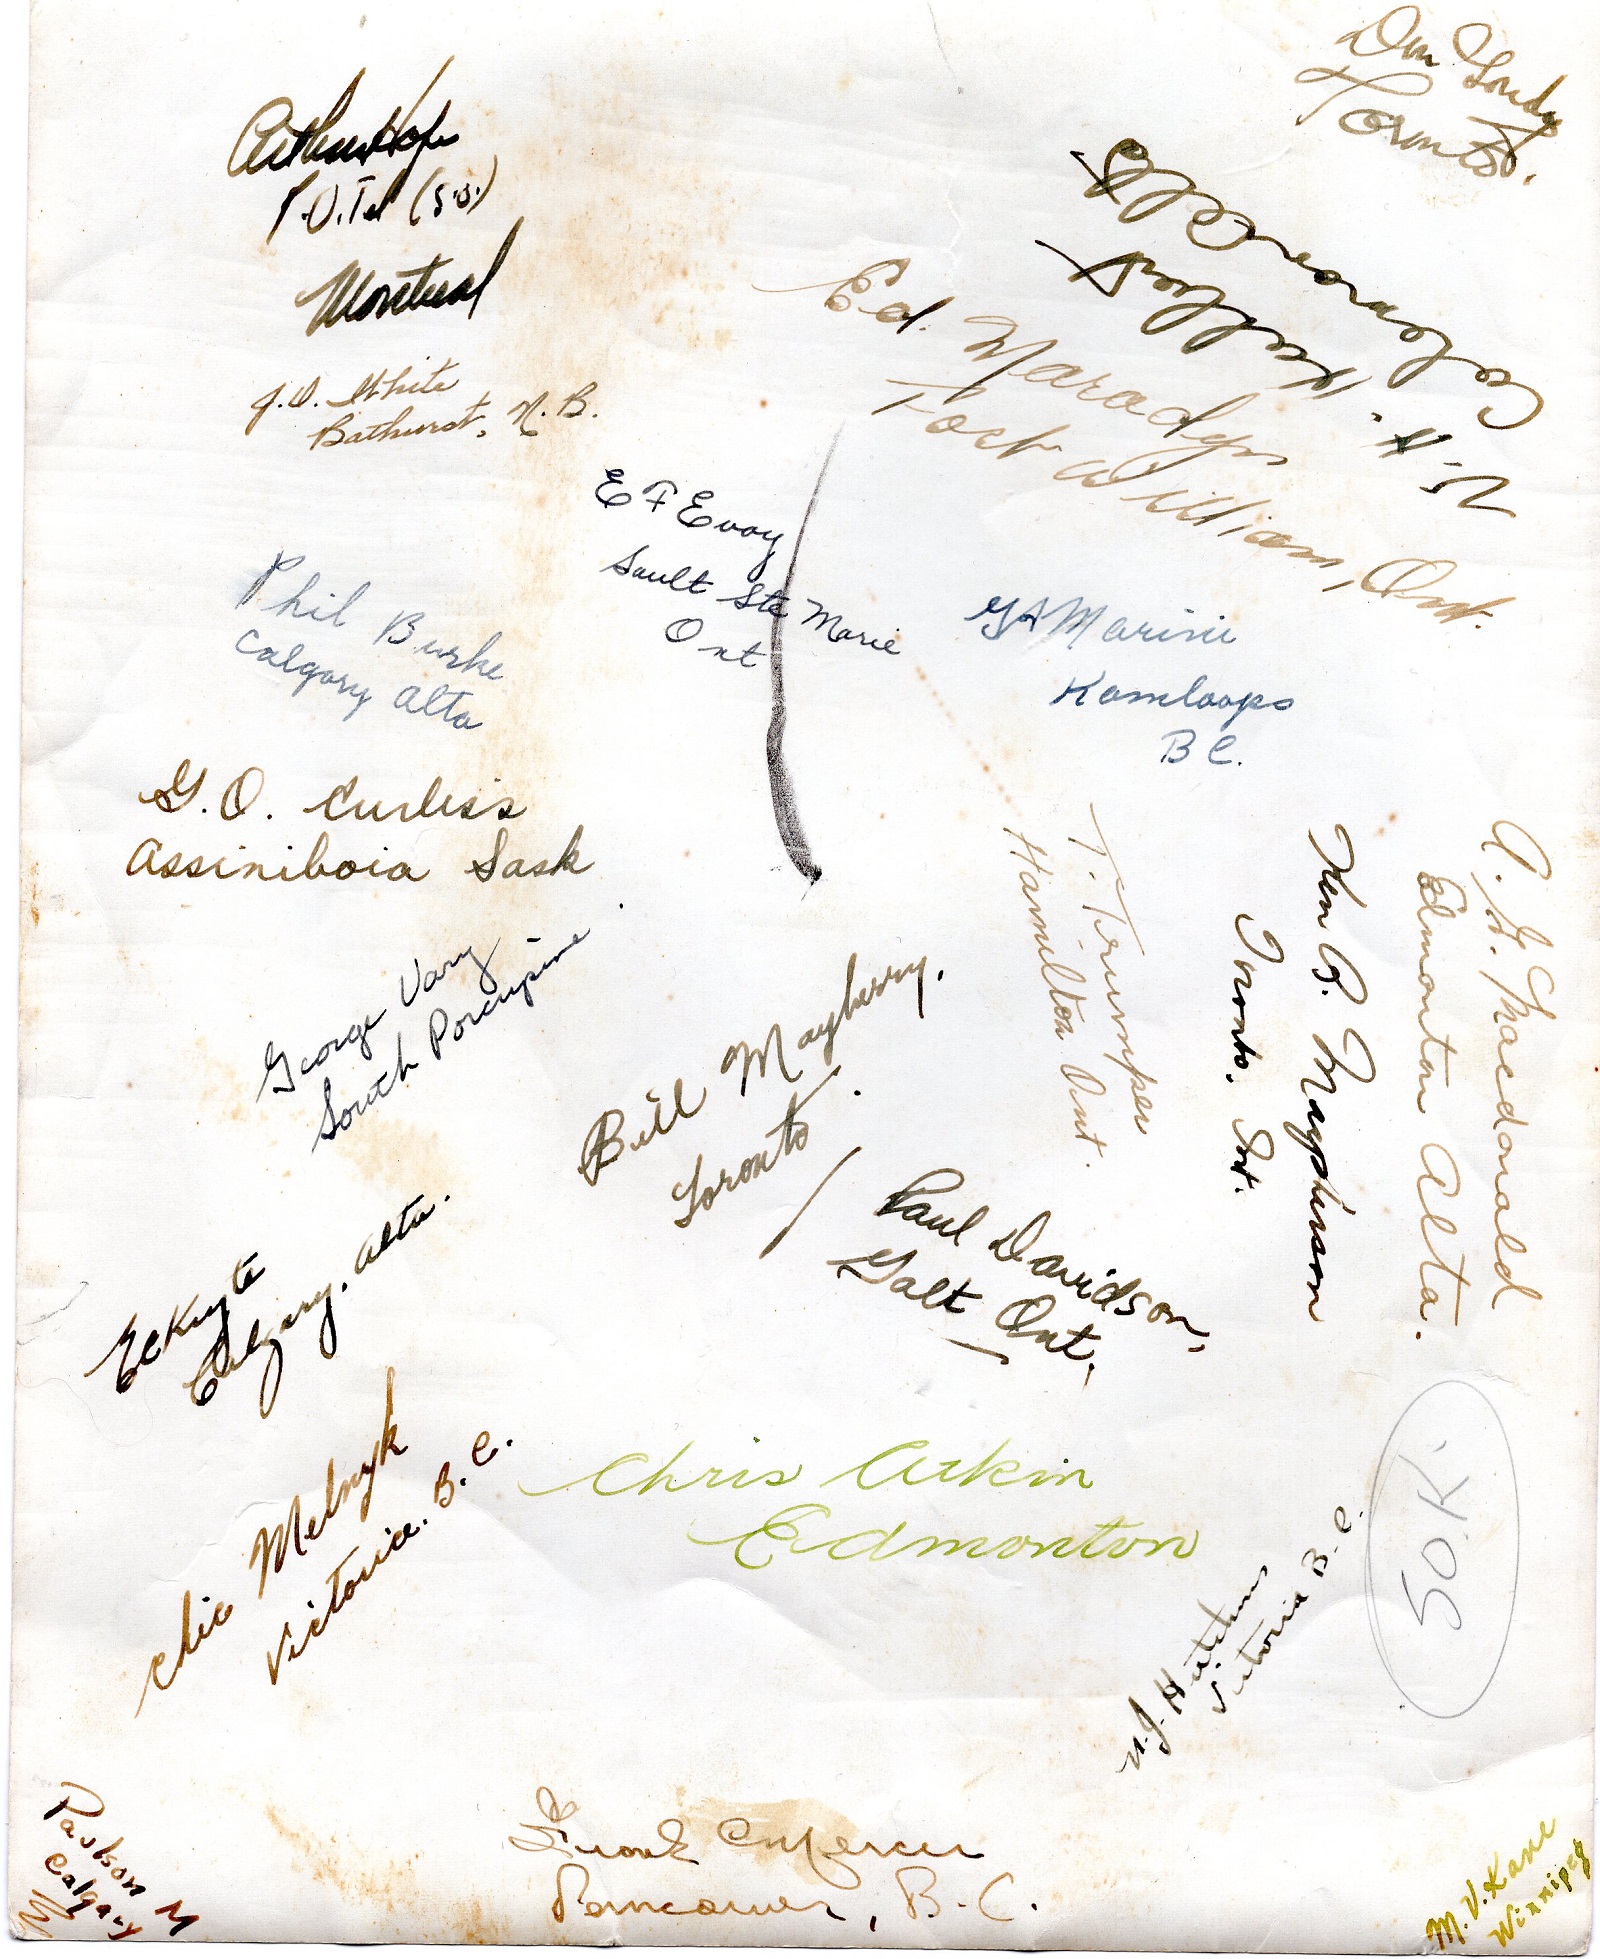 Arthur Hope
P.O. Tel (S.O.)
Montreal
Don
Toronto.
V. H. Hulbert
Edmonton Alta
Ed. Maradyn
Fort William, Ont.
J.D. White
Bathurst, N.B.
E F Evoy
Sault Ste Marie
Ont
Phil Burke
Calgary Alta
G A Marini
Kamloops
BC.
G. O. Curliss
Assiniboia Sask
George Vary
South Porcupine
Bill Mayberry.
Toronto
T. Trumper
Hamilton Ont.
Ken B. Magnusson
Toronto. Ont.
A. G. Macdonald
Edmonton Alta.
Paul Davidson,
Galt Ont.
Calgary, Alta.
Chic Melnyk
Victoria. B.C.
Chris Aitkin
Edmonton
50K.
N.J. Hutchins
Victoria B.C.
Paulson M
Calgary
Frank
Vancouver, B.C.
M.V. Kane
Winnipeg